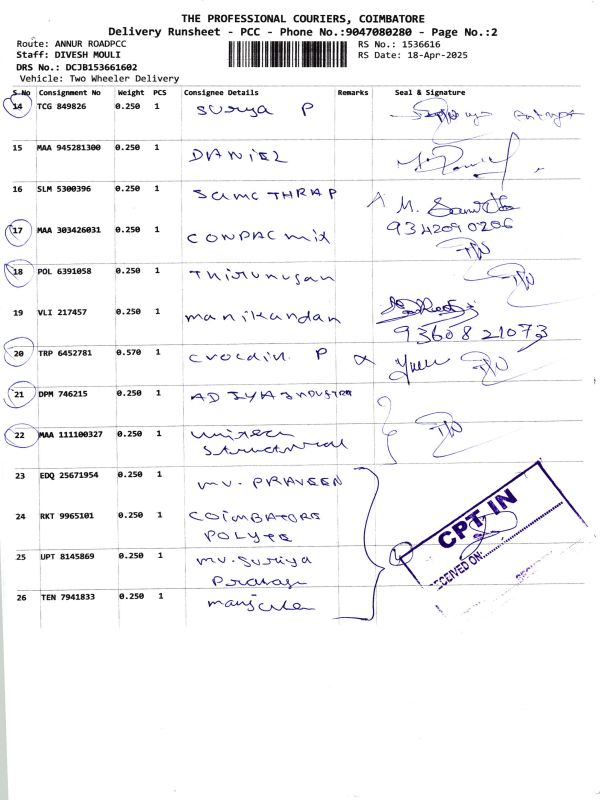 THE PROFESSIONAL COURIERS, COIMBATORE
Delivery Runsheet - PCC - Phone No.:9047080280 - Page No.:2
Route: ANNUR ROADPCC
RS No.: 1536616
Staff: DIVESH MOULI
RS Date: 18-Apr-2025
DRS No.: DCJB153661602
Vehicle: Two Wheeler Delivery
S No Consignment No Weight PCS Consignee Details Remarks Seal & Signature
14 TCG 849826 0.250 1 Surya P
15 MAA 945281300 0.250 1 DANIEL
16 SLM 5300396 0.250 1 A M.
17 MAA 303426031 0.250 1 CONPAC mix 9342090206
18 POL 6391058 0.250 1
19 VLI 217457 0.250 1 manikandan
9360821073
20 TRP 6452781 0.570 1 P
21 DPM 746215 0.250 1
22 MAA 111100327 0.250 1
Structural
23 EDQ 25671954 0.250 1 mv. PRAVEEN
24 RKT 9965101 0.250 1 COIMBATORE
CPT IN
25 UPT 8145869 0.250 1 mv. Suriya
26 TEN 7941833 0.250 1